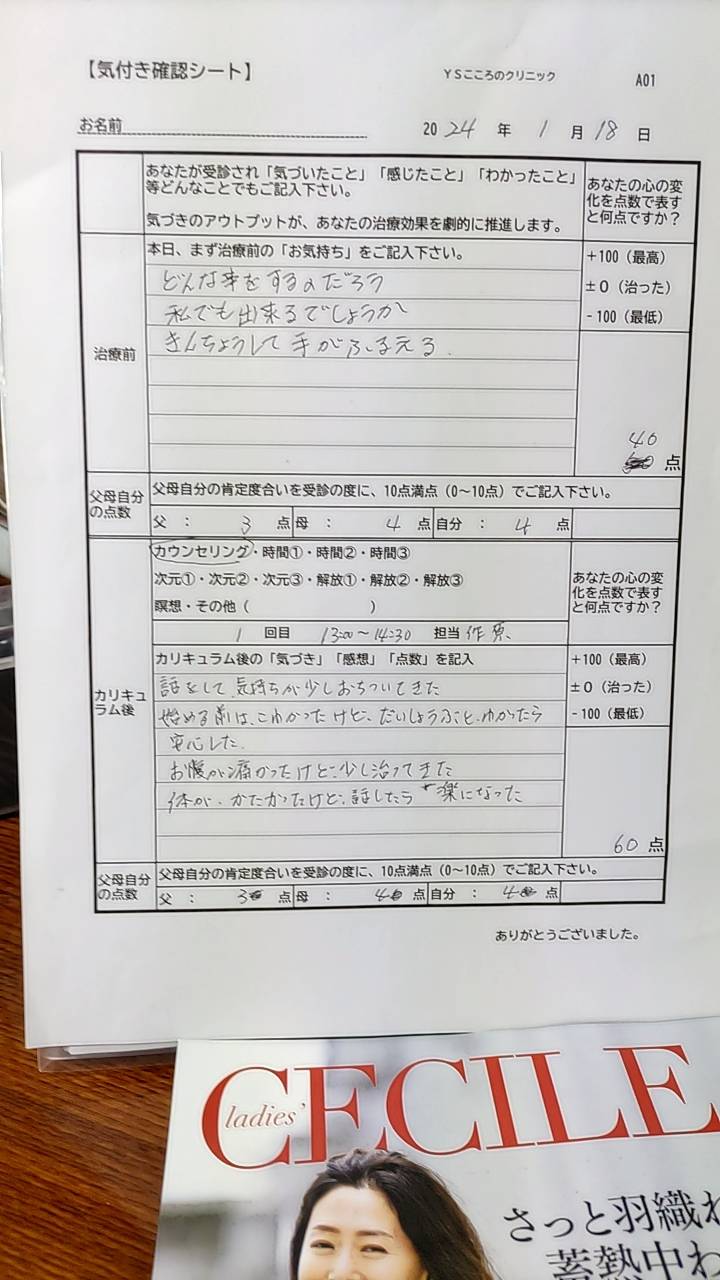 【気付き確認シート】
YSこころのクリニック
A01
お名前
2024年1月18日
あなたが受診され「気づいたこと」「感じたこと」「わかったこと」
等どんなことでもご記入下さい。
気づきのアウトプットが、あなたの治療効果を劇的に推進します。
あなたの心の変
化を点数で表す
と何点ですか？
治療前
本日、まず治療前の「お気持ち」をご記入下さい。
どんな事をするのだろう
私でも出来るでしょうか
きんちょうして手がふるえる.
+100（最高）
±0（治った）
-100（最低）
40
点
父母自分
の点数
父母自分の肯定度合いを受診の度に、10点満点（0～10点）でご記入下さい。
父： 3 点 母： 4 点 自分： 4 点
カリキュ
ラム後
カウンセリング・時間①・時間②・時間③
次元①・次元②・次元③・解放①・解放②・解放③
瞑想・その他（ ）
1 回目 13:00～14:30 担当
あなたの心の変
化を点数で表す
と何点ですか？
カリキュラム後の「気づき」「感想」「点数」を記入
話をして、気持ちが少しおちついてきた
始める前は、こわかったけど、だいしょうぶと、わかったら
安心した.
お腹が痛かったけど、少し治ってきた
体が、かたかったけど、話したら 楽になった
+100（最高）
±0（治った）
-100（最低）
60 点
父母自分
の点数
父母自分の肯定度合いを受診の度に、10点満点（0～10点）でご記入下さい。
父： 3 点 母： 4 点 自分： 4 点
ありがとうございました。
CECILE
ladies'
さっと羽織れ
蓄熱中わ